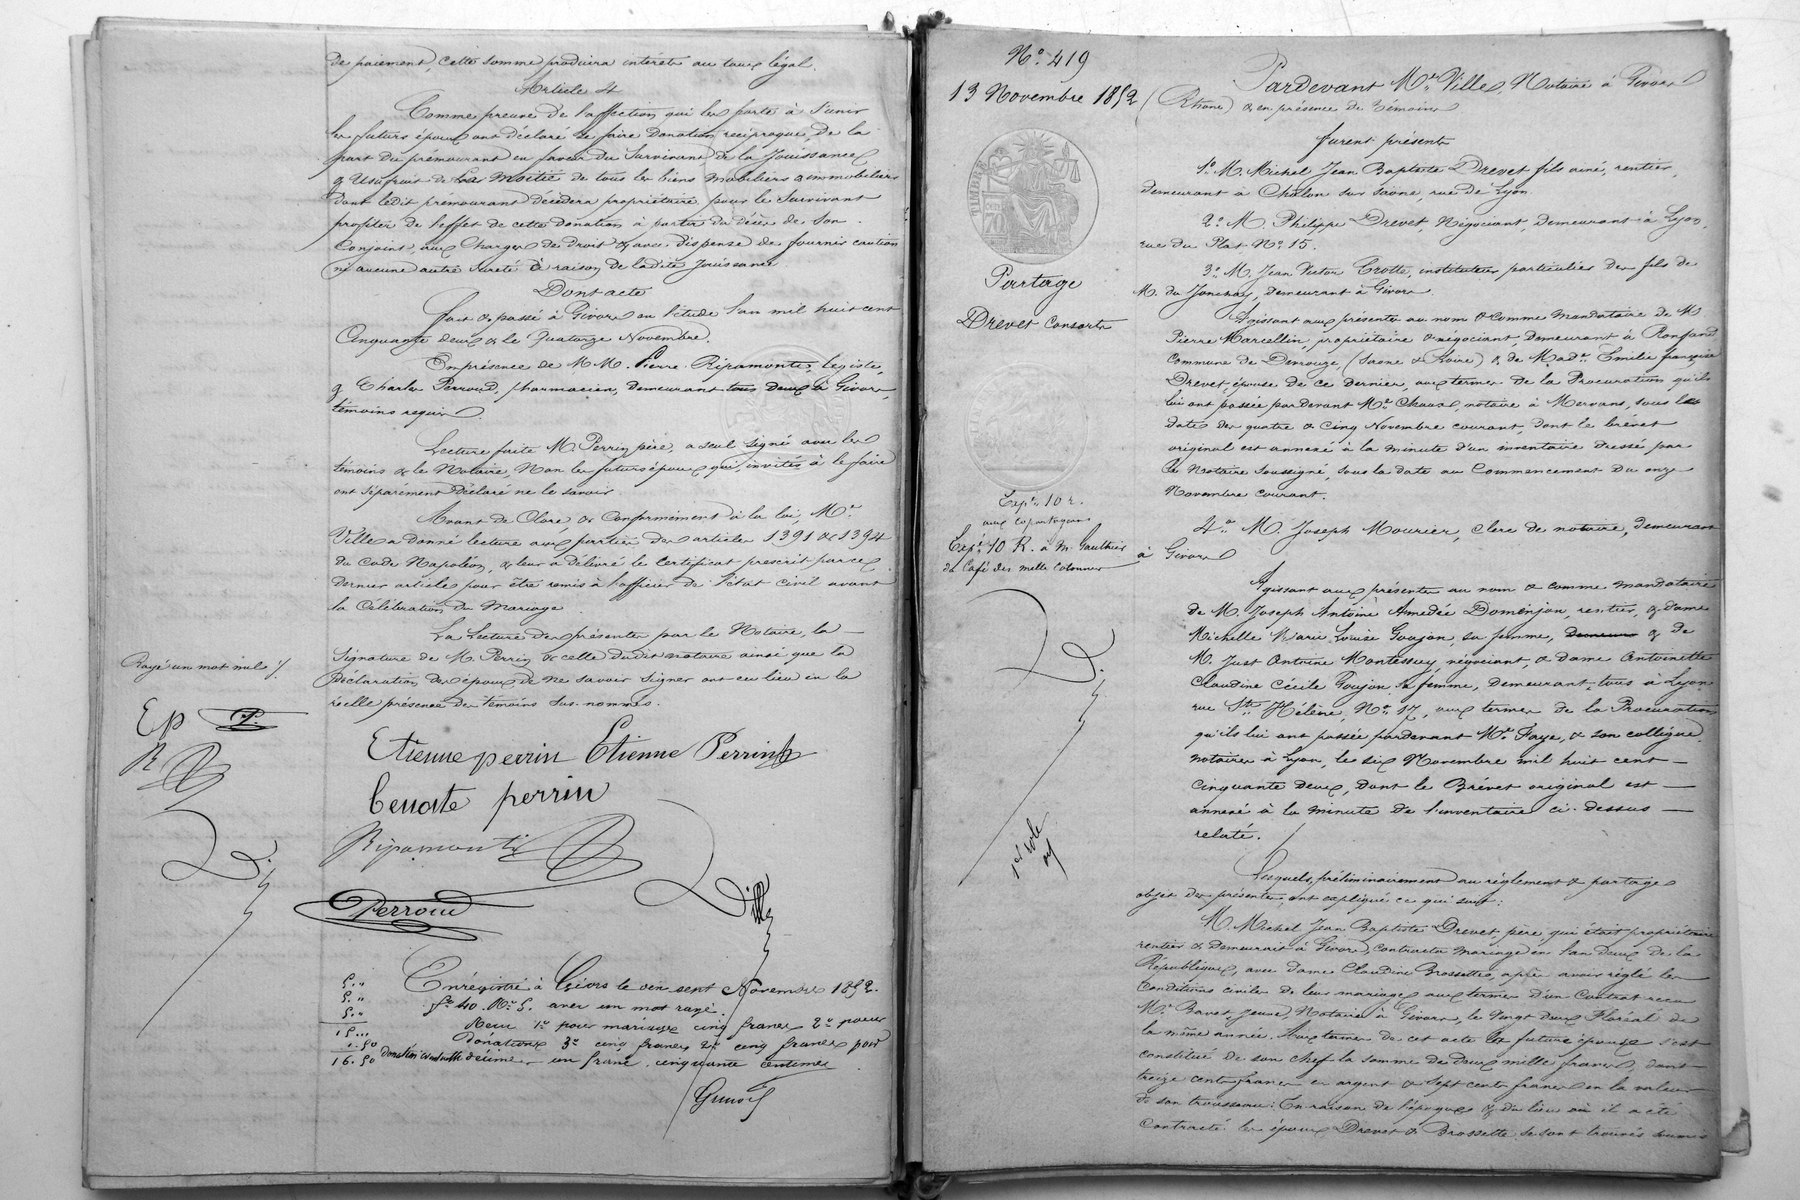 de paiement, cette somme produira intérêts au taux légal.
Article 4
Comme preuve de l'affection qui les porte à s'unir
les futurs époux ont déclaré se faire donation réciproque de la
part du prémourant en faveur du Survivant de la Jouissance
& Usufruit de la Moitié de tous les biens mobiliers & immobiliers
dont ledit premourant décédera propriétaire, pour le Survivant
profiter de l'effet de cette donation à partir du décès de Son
Conjoint, aux Charges de droit & avec dispense de fournir caution
ni aucune autre Sureté à raison de ladite Jouissance
Dont acte
fait & passé à Givors en l'étude l'an mil huit cent
Cinquante deux & le Quatorze Novembre.
En présence de M.M. Pierre Ripamonte, légiste,
& Charles Perroud, pharmacien, demeurant tous deux à Givors,
témoins requis
Lecture faite M. Perrin père, a seul signé avec les
témoins & le Notaire, Non les futurs époux qui, invités à le faire
ont séparément Déclaré ne le savoir.
Avant de Clore, & Conformément à la loi, Me
Ville a donné lecture aux parties des articles 1391 & 1394
du Code Napoléon, & leur a délivré le Certificat prescrit par ce
dernier article pour être remis à l'officier de l'état civil avant
la Célébration du Mariage
La Lecture des présentes par le Notaire, la
Signature de M. Perrin & celle dudit notaire ainsi que la
Déclaration des époux de ne savoir signer ont eu lieu en la
réelle présence des témoins sus-nommés.
Rayé un mot nul
EP P.
R
Etienne perrin Etienne Perrin
benoite perrin
Ripamonti
Perroud
Ville
Enregistré à Givors le vingt sept Novembre 1852.
fo 40 Ro c 5. avec un mot rayé.
Reçu 1o pour mariage cinq francs 2o pour
donation 3o cinq francs cinq francs pour
décime un franc cinquante centimes
5 "
5 "
5 "
15 "
1.50
16.50
No 419
13 Novembre 1852
TIMBRE
Partage
Drevet Consorts
Expn 10 r.
aux copartageans
Expn 10 R. à M. Gauthier
du Café des mille Colonnes
1er rôle
Pardevant Me Ville, Notaire à Givors
(Rhône) & en présence de témoins
furent présents
1o M. Michel Jean Baptiste Drevet fils ainé, rentier,
demeurant à Châlon sur Saône, rue de Lyon.
2o M. Philippe Drevet, Négociant, demeurant à Lyon,
rue du Plat No 15.
3o M. Jean Victor Trotte, instituteur particulier des fils de
M. du Jonchay, demeurant à Givors.
Agissant aux présentes au nom & comme mandataire de M.
Pierre Marcellin, propriétaire & négociant, demeurant à
Commune de (Saône & Loire) & de Made Emilie françoise
Drevet, épouse de ce dernier, aux termes de la Procuration qu'ils
lui ont passée pardevant Me Chavas, notaire à Mervans, sous les
dates des quatre & cinq Novembre courant, dont le brevet
original est annexé à la minute d'un inventaire dressé par
le Notaire soussigné, sous la date au Commencement du onze
Novembre courant.
4o M. Joseph Mourier, clerc de notaire, demeurant
à Givors
Agissant aux présentes au nom & comme mandataire
de M. Joseph Antoine Amedée Doménjon, rentier, & dame
Michelle Marie Louise Goujon, sa femme, & de
M. Just Antoine Montessuy, négociant & dame Antoinette
Claudine Cécile Goujon sa femme, demeurant tous à Lyon
rue Ste Hélène, No 17, aux termes de la Procuration
qu'ils lui ont passée pardevant Me Faye, & son collègue,
notaires à Lyon, le six Novembre mil huit cent
cinquante deux, dont le Brévet original est
annexé à la minute de l'inventaire ci-dessus
relaté.
Lesquels, préliminairement au réglement & partage
objet des présentes, ont expliqué ce qui suit:
M. Michel Jean Baptiste Drevet, père, qui était propriétaire
rentier & demeurait à Givors, contracta mariage en l'an deux de la
République, avec dame Claudine Brossette, après avoir réglé les
Conditions civiles de leur mariage aux termes d'un Contrat reçu
Me Bavet jeune, Notaire à Givors, le vingt deux Floréal de
la même année. Aux termes de cet acte la future épouse s'est
constitué de son chef la somme de deux mille francs, dont
treize cents francs en argent & sept cents francs en la valeur
de son trousseau. En raison de l'époque & du lieu où il a été
Contracté, les époux Drevet & Brossette se sont trouvés soumis